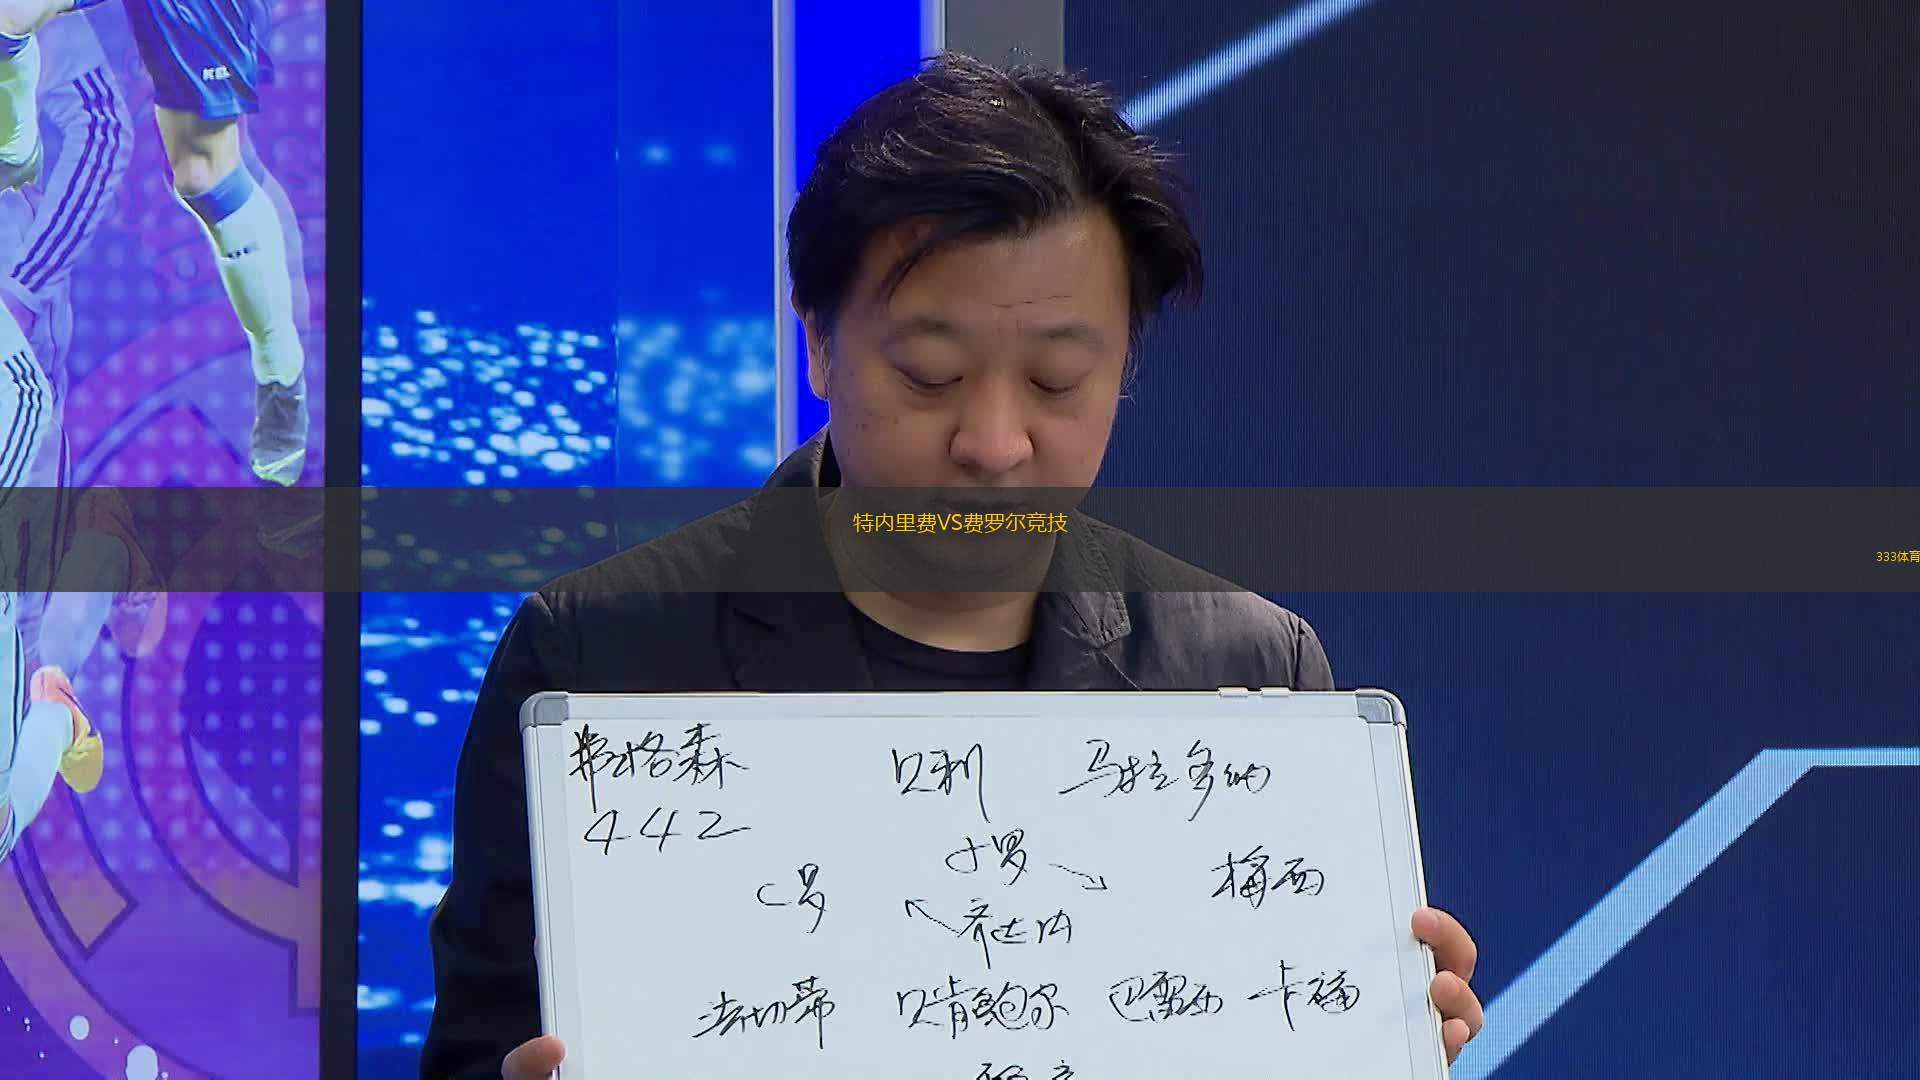 特内里费VS费罗尔竞技
333体育
弗格森 贝利 马拉多纳
442
小罗
C罗 梅西
齐达内
法切蒂 贝肯鲍尔 巴雷西 卡福